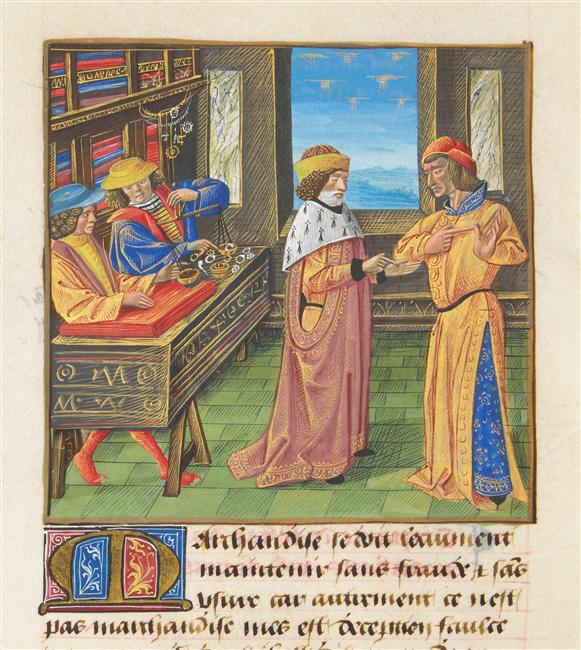 Marchandise se doit loaument
maintenir sans fraude & sãs
usure car autrement ce nest
pas marchandise mes est deception faulce